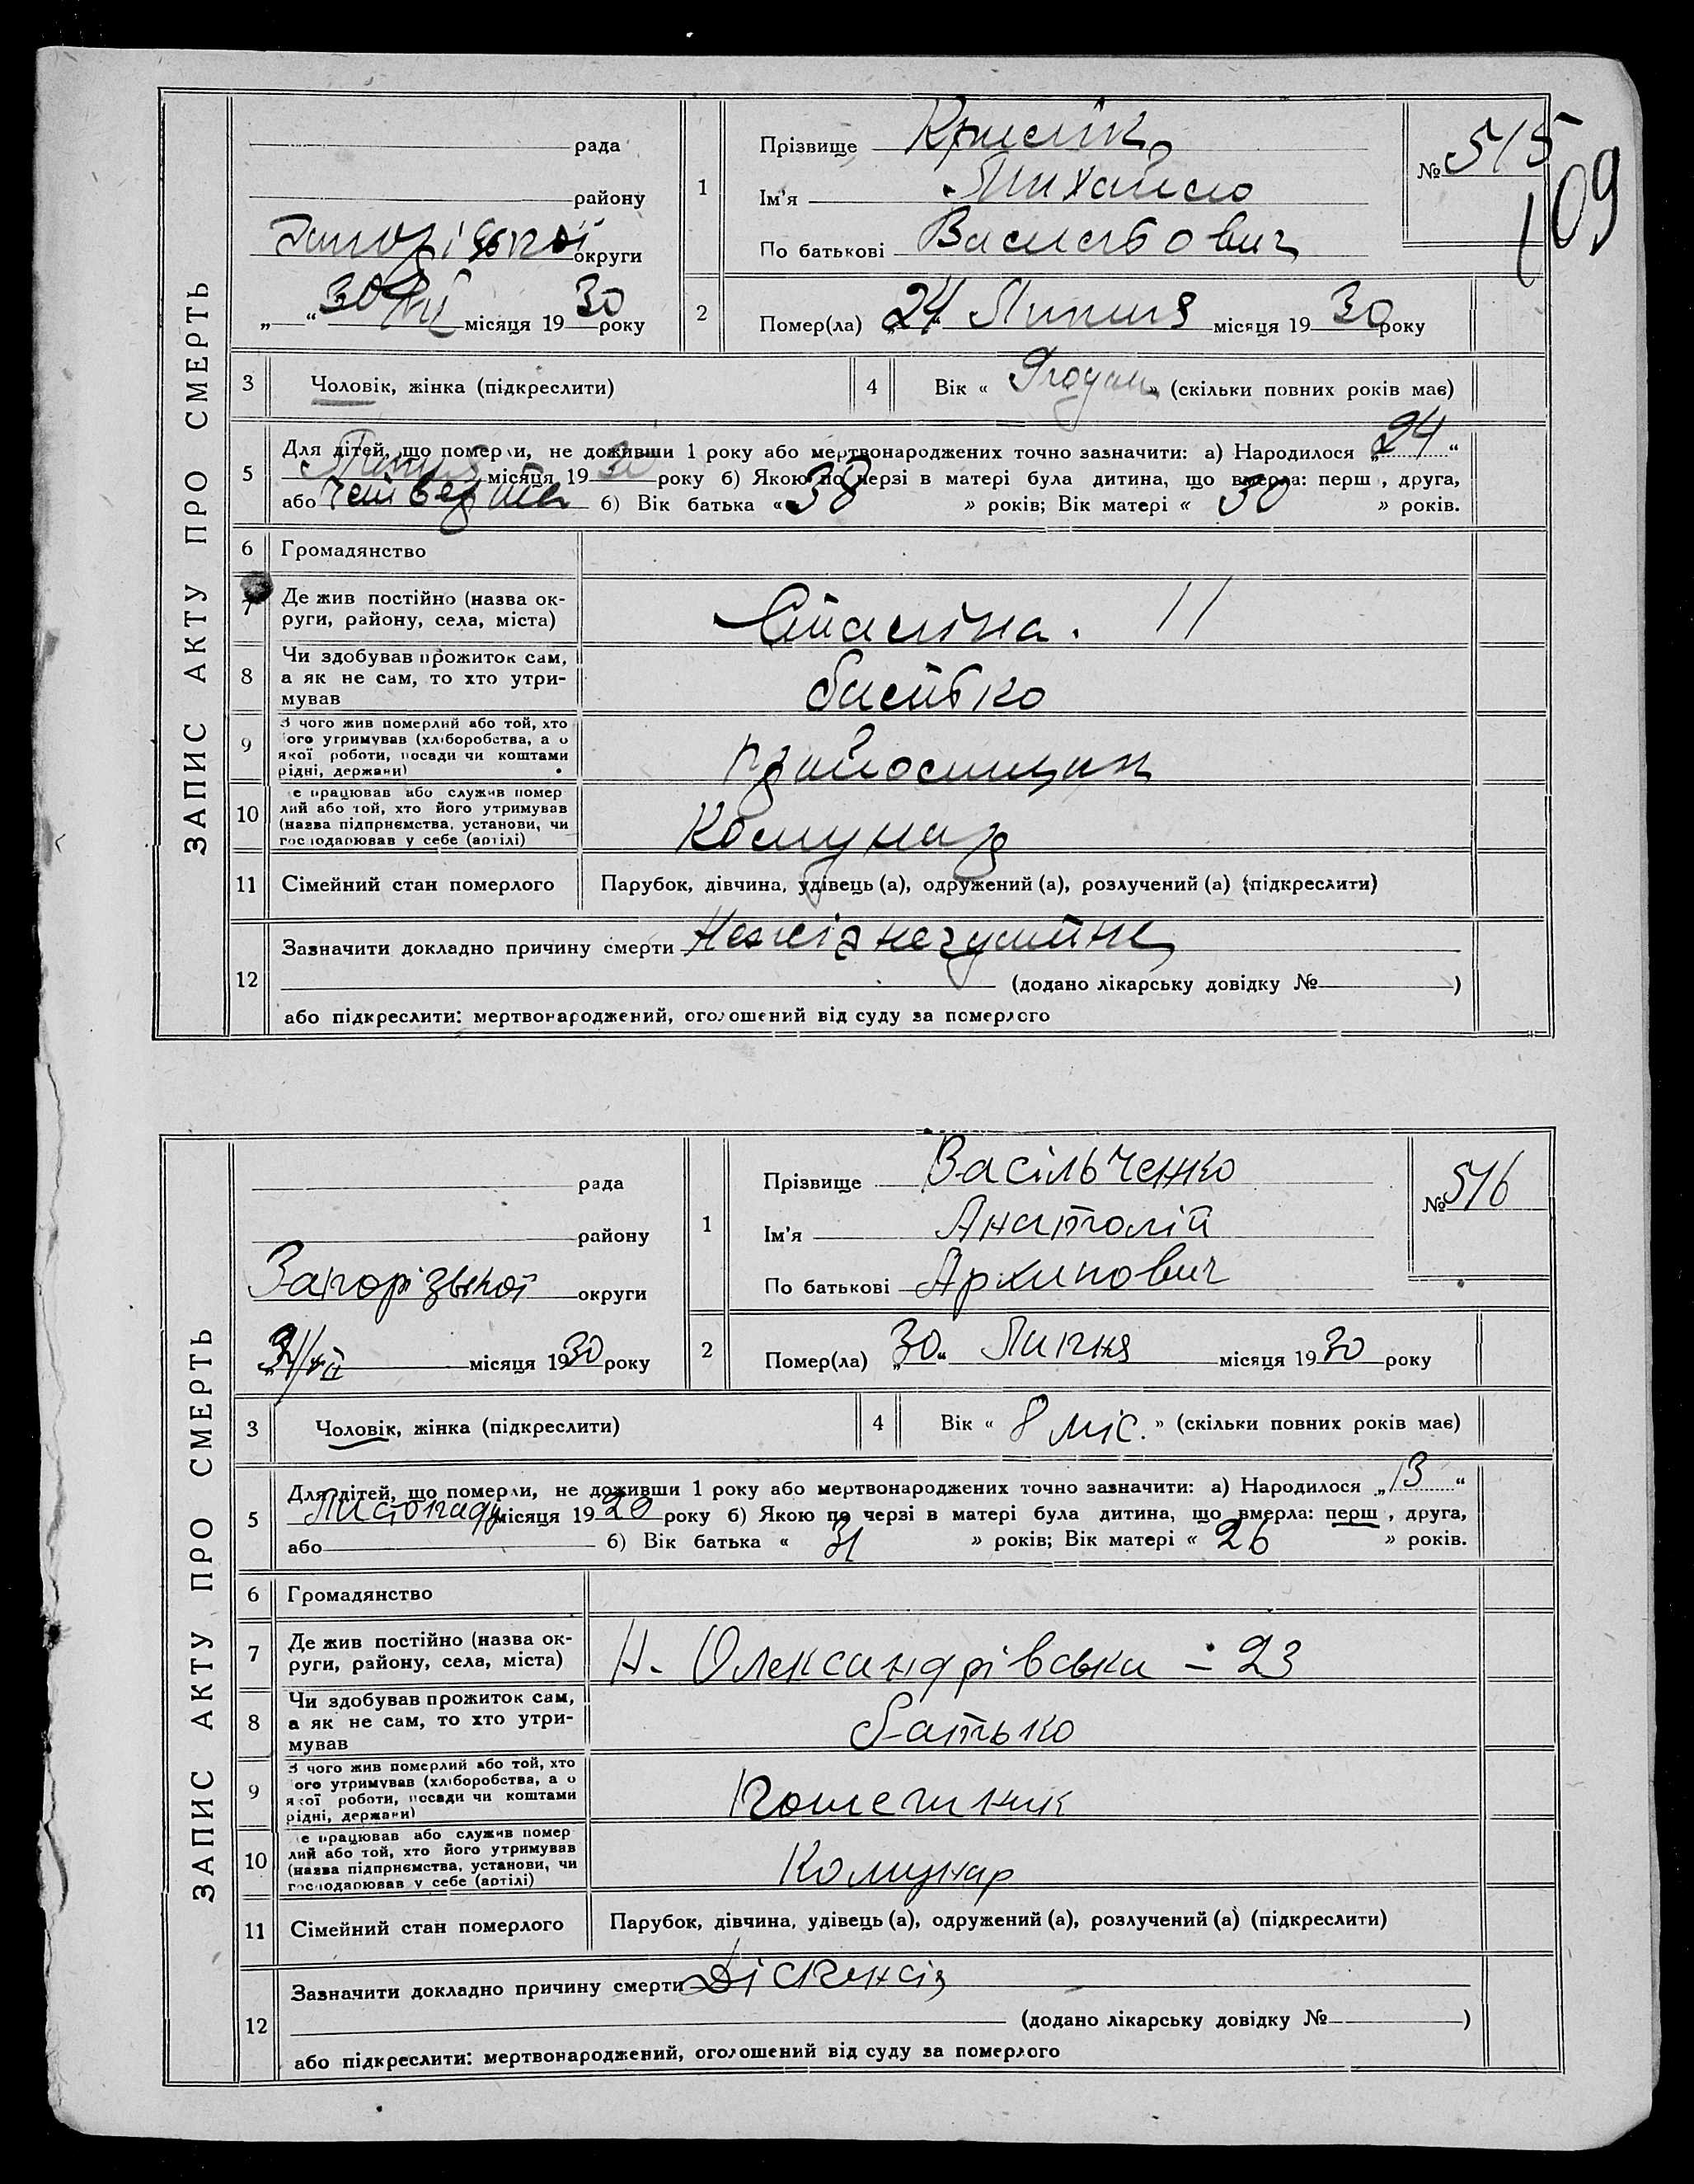 ЗАПИС АКТУ ПРО СМЕРТЬ
рада
району
округи
30/VII місяця 1930 року
1
Прізвище
Ім'я Михайло
По батькові Васильович
№ 515
109
2
Помер(ла) „24“ Липня місяця 1930 року
3
Чоловік, жінка (підкреслити)
4
Вік « » (скільки повних років має)
5
Для дітей, що померли, не доживши 1 року або мертвонароджених точно зазначити: а) Народилося „24“
Липня місяця 1930 року б) Якою по черзі в матері була дитина, що вмерла: перш , друга,
або четверта б) Вік батька «38» років; Вік матері «30» років.
6
Громадянство
7
Де жив постійно (назва ок-
руги, району, села, міста)
Сталіна. 11
8
Чи здобував прожиток сам,
а як не сам, то хто утри-
мував
батько
9
З чого жив померлий або той, хто
його утримував (хліборобства, а о
якої роботи, посади чи коштами
рідні, держави)
10
е працював або служив помер
лий або той, хто його утримував
(назва підприємства, установи, чи
господарював у себе (артілі)
Комунар
11
Сімейний стан померлого
Парубок, дівчина, удівець (а), одружений (а), розлучений (а) (підкреслити)
12
Зазначити докладно причину смерти
(додано лікарську довідку № )
або підкреслити: мертвонароджений, оголошений від суду за померлого
ЗАПИС АКТУ ПРО СМЕРТЬ
рада
району
Запорізької округи
31/VII місяця 1930 року
1
Прізвище Васільченко
Ім'я Анатолій
По батькові Архипович
№ 516
2
Помер(ла) „30“ Липня місяця 1930 року
3
Чоловік, жінка (підкреслити)
4
Вік « 8 міс. » (скільки повних років має)
5
Для дітей, що померли, не доживши 1 року або мертвонароджених точно зазначити: а) Народилося „13“
Листопаду місяця 1929 року б) Якою по черзі в матері була дитина, що вмерла: перш , друга,
або б) Вік батька « 31 » років; Вік матері « 26 » років.
6
Громадянство
7
Де жив постійно (назва ок-
руги, району, села, міста)
Н. Олександрівська - 23
8
Чи здобував прожиток сам,
а як не сам, то хто утри-
мував
батько
9
З чого жив померлий або той, хто
ого утримував (хліборобства, а о
якої роботи, посади чи коштами
рідні, держави)
10
е працював або служив помер
лий або той, хто його утримував
(назва підприємства, установи, чи
господарював у себе (артілі)
Комунар
11
Сімейний стан померлого
Парубок, дівчина, удівець (а), одружений (а), розлучений (а) (підкреслити)
12
Зазначити докладно причину смерти Діспенсія
(додано лікарську довідку № )
або підкреслити: мертвонароджений, оголошений від суду за померлого